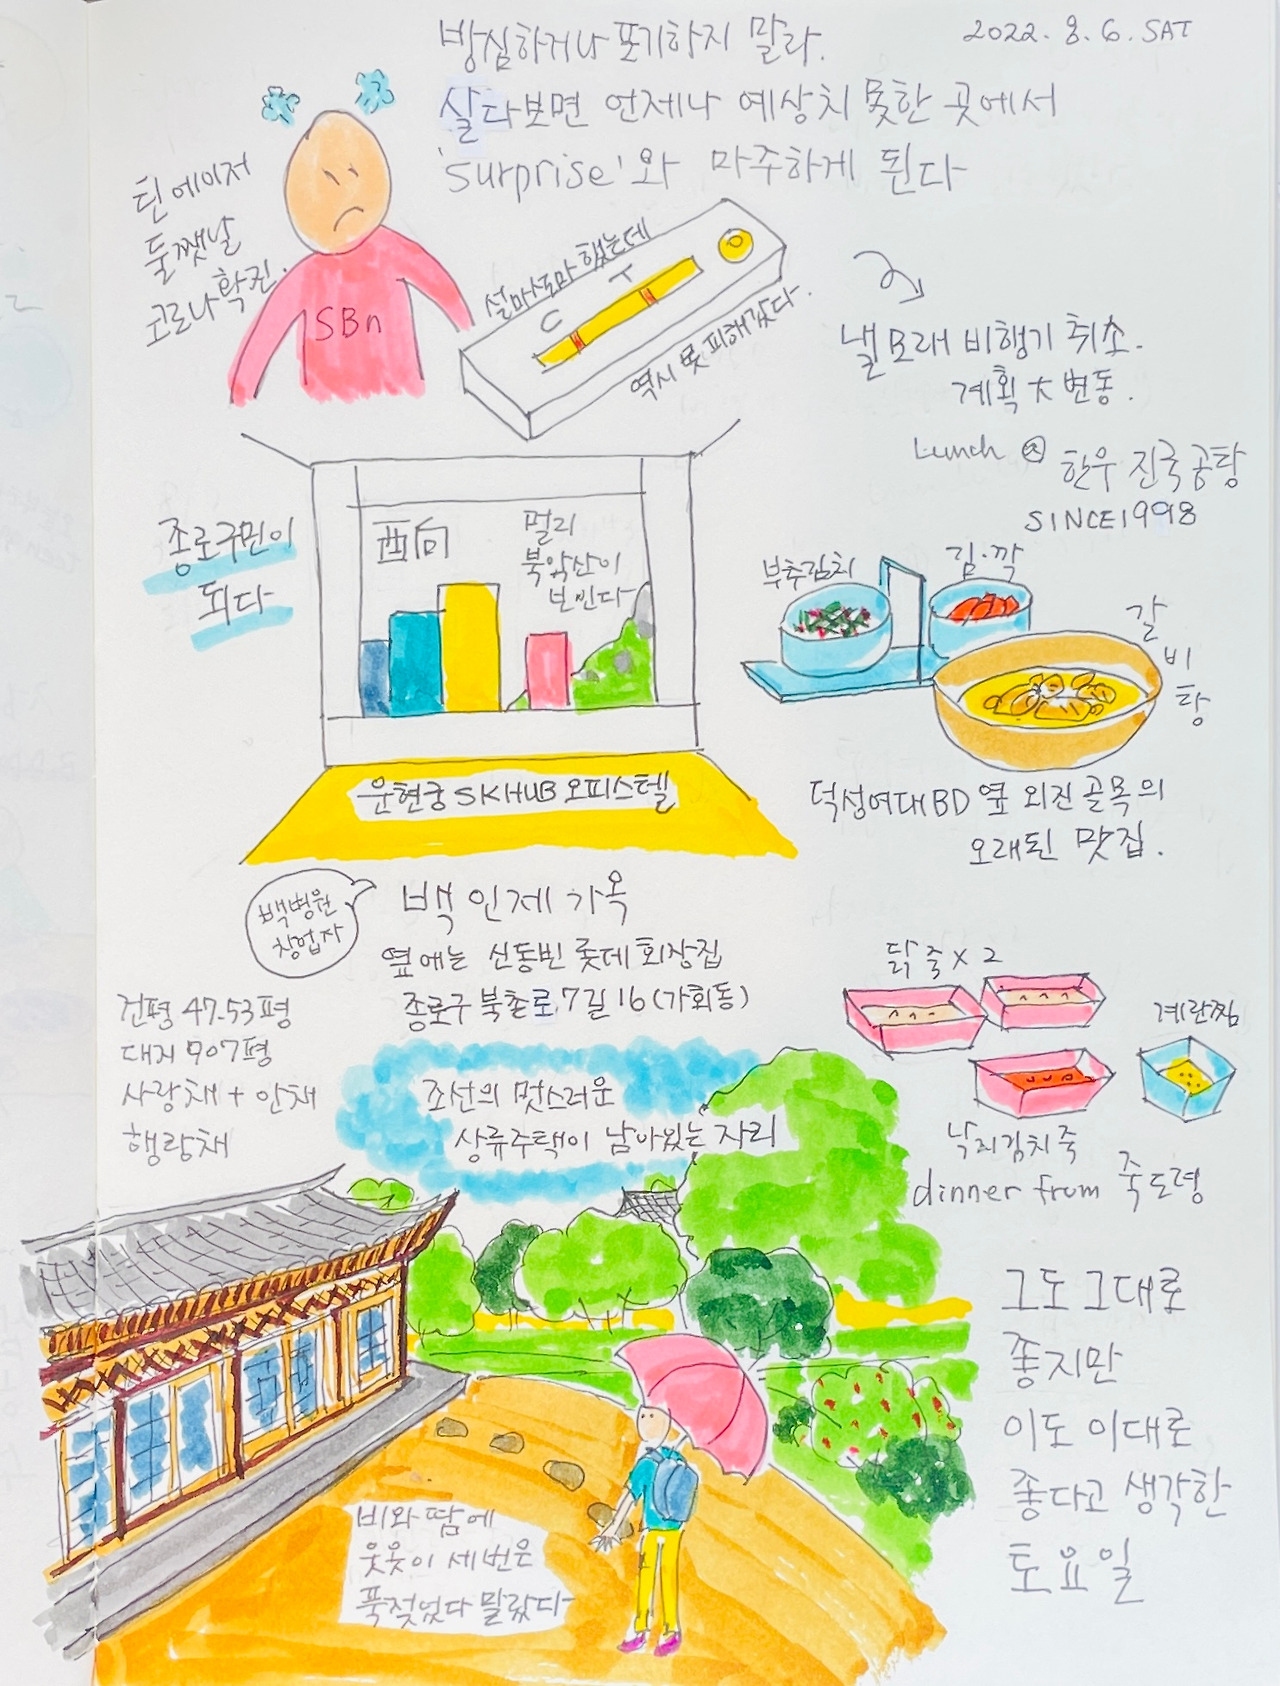 2022. 8. 6. SAT
방심하거나 포기하지 말라.
살다보면 언제나 예상치 못한 곳에서
'surprise'와 마주하게 된다
틴에이저
둘쨋날
코로나 확진.
SBn
설마설마 했는데
C
T
역시 못 피해갔다.
낼모래 비행기 취소.
계획 大 변동.
종로구민이
되다
西向
멀리
북악산이
보인다
운현궁 SKHUB 오피스텔
Lunch
한우 진국곰탕
SINCE1998
부추김치
김·깍
갈
비
탕
덕성여대 BD 옆 외진 골목의
오래된 맛집.
백병원
창업자
백인제 가옥
옆에는 신동빈 롯데 회장집
종로구 북촌로 7길 16 (가회동)
건평 47.53평
대지 907평
사랑채 + 안채
행랑채
조선의 멋스러운
상류주택이 남아있는 자리
닭죽 x 2
계란찜
낙지김치죽
dinner from 죽도령
비와 땀에
웃옷이 세번은
푹 젖었다 말랐다
그도 그대로
좋지만
이도 이대로
좋다고 생각한
토요일